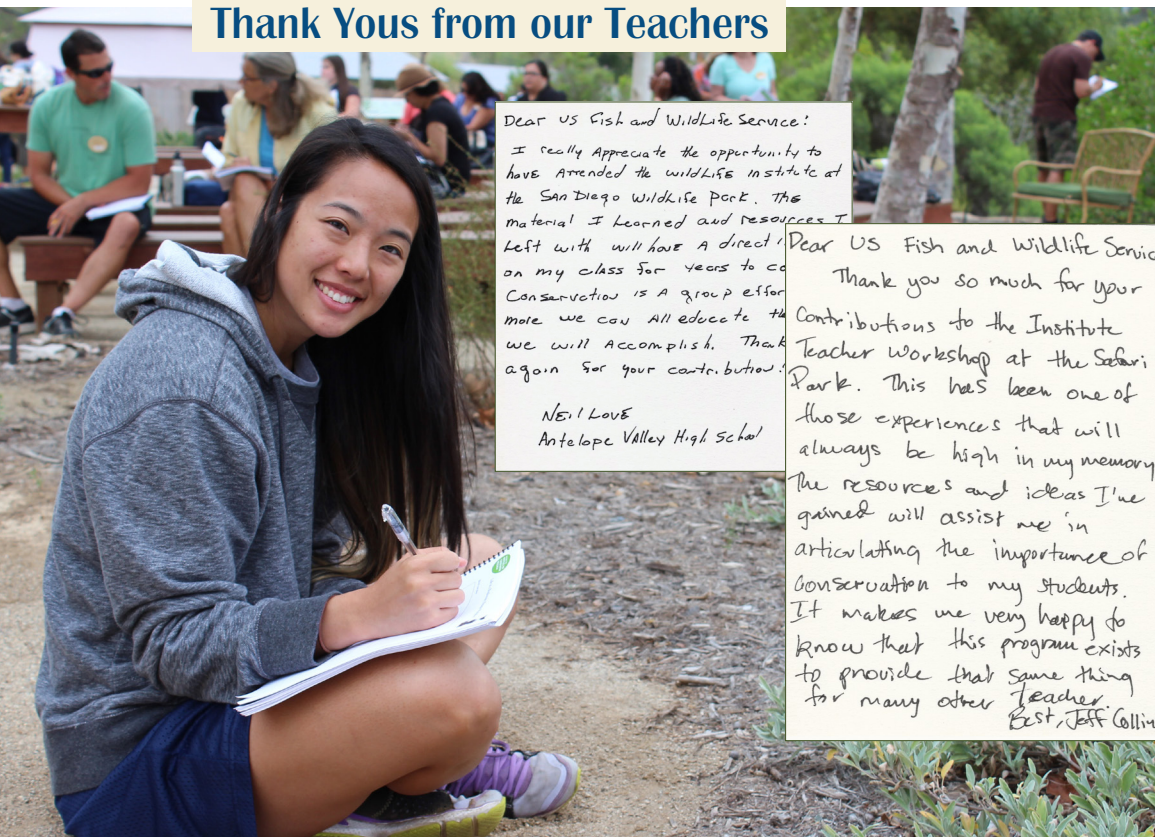 Thank Yous from our Teachers
Dear US Fish and WildLife Service!
I really Appreciate the opportunity to
have Attended the wildLife institute at
the SAN Diego WildLife Park. The
material I Learned and resources I
Left with will have A direct
on my class for years to
Conservation is A group
more we can All educate
we will Accomplish.
again for your contribution!
NEil LovE
Antelope VAlley High School
Dear US Fish and Wildlife
Thank you so much for your
Contributions to the Institute
Teacher Workshop at the Safari
Park. This has been one of
those experiences that will
always be high in my memory
The resources and ideas I've
gained will assist me in
articulating the importance of
conservation to my students.
It makes me very happy to
know that this program exists
to provide that same thing
for many other teacher.
Best, Jeff